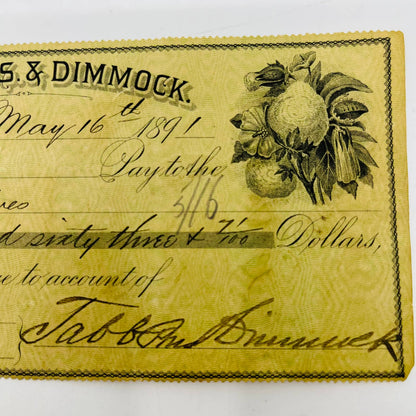 S. & DIMMOCK.
May 16th 1891
Pay to the
516
d sixty three & 71/100 Dollars,
e to account of
Dimmock